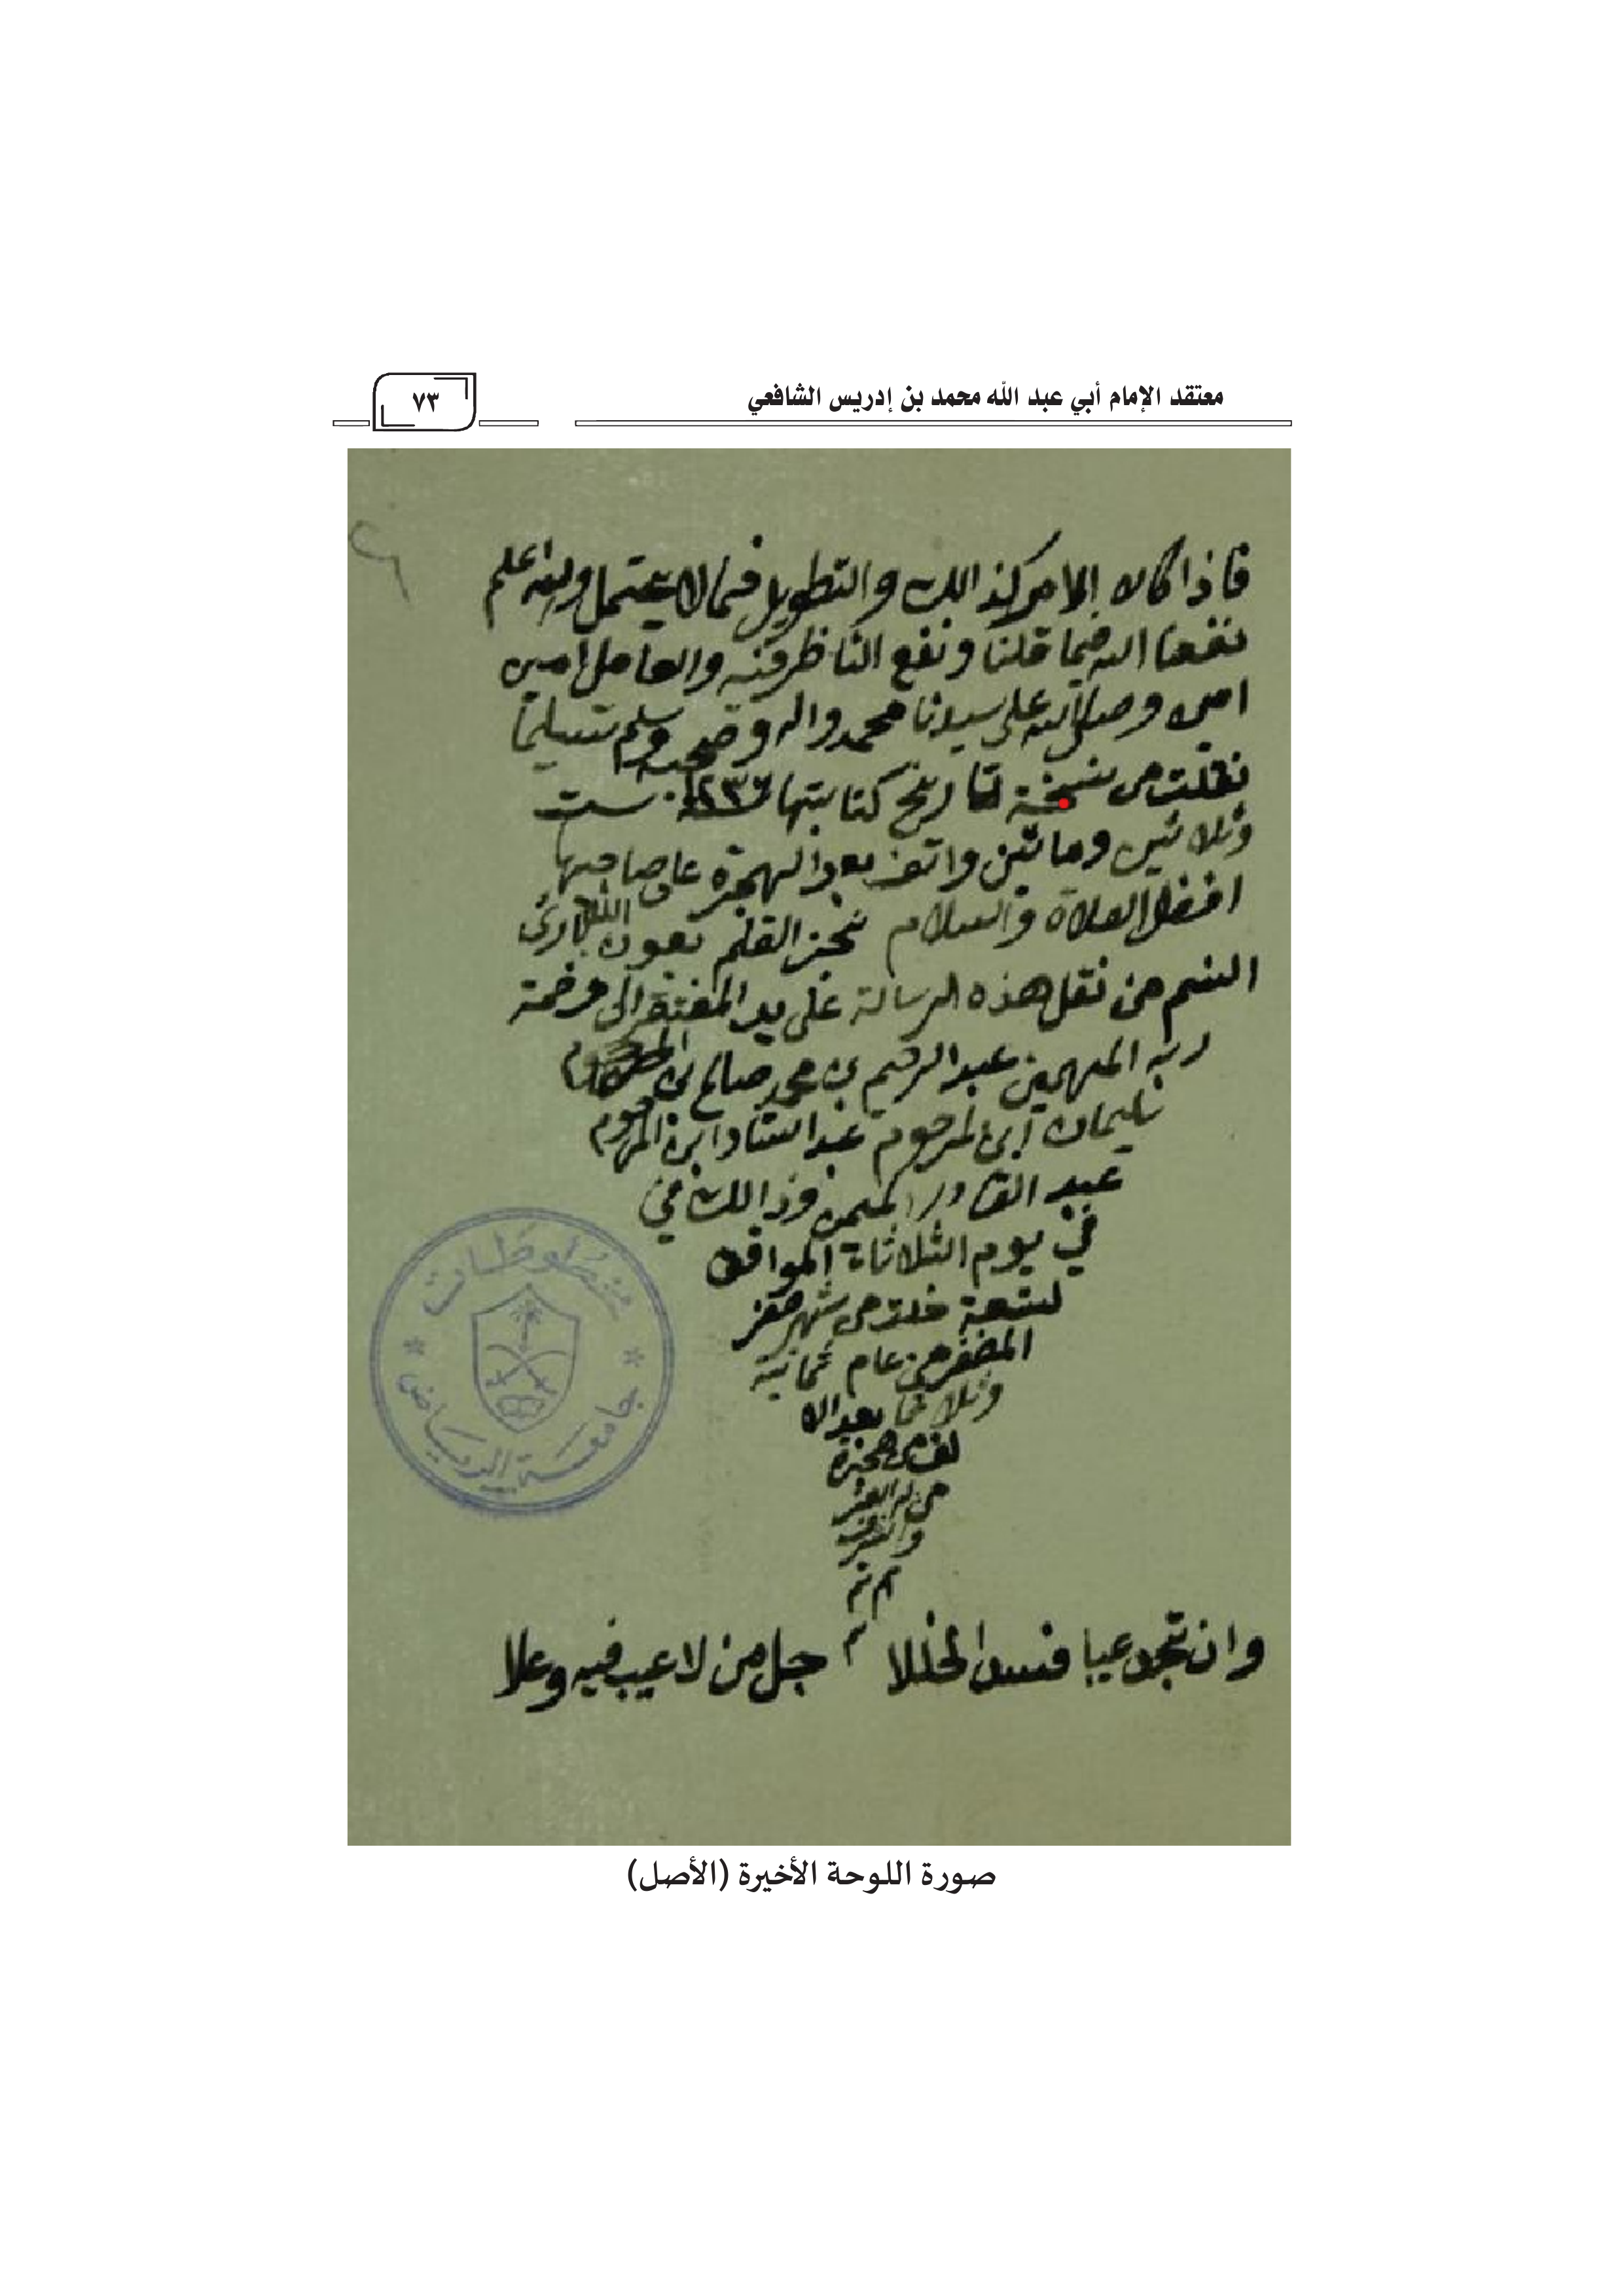 معتقد الإمام أبي عبد الله محمد بن إدريس الشافعي
٧٣
فاذا كان الامر كذالك والتطويل فمالا يحتمل والله اعلم
نفعنا الله فيما قلنا ونفع الناظر فيه والعامل امين
امين وصلى الله على سيدنا محمد واله وصحبه وسلم تسليما
نقلت من نسخة تاريخ كتابتها ١٢٣٦ ست
وثلاثين ومائتين والف بعد الهجرة على صاحبها
افضل الصلاة والسلام نجز القلم بعون الباري
النسم من نقل هذه الرسالة على يد المفتقر الى مرحمة
ربه المهيمن عبد الرحيم بن محمد صالح بن المرحوم
سليمان ابن المرحوم عبد الستار ابن المرحوم
عبد القادر وذالك في
في يوم الثلاثاء الموافق
لتسعة خلت من شهر صفر
المضفر من عام ثمانية
وثلاثما بعد الا
لف من هجرة
من له العز
والشرف
تم
وان تجد عيبا فسد الخللا جل من لا عيب فيه وعلا
مخطوطات
جامعة الرياض
صورة اللوحة الأخيرة (الأصل)